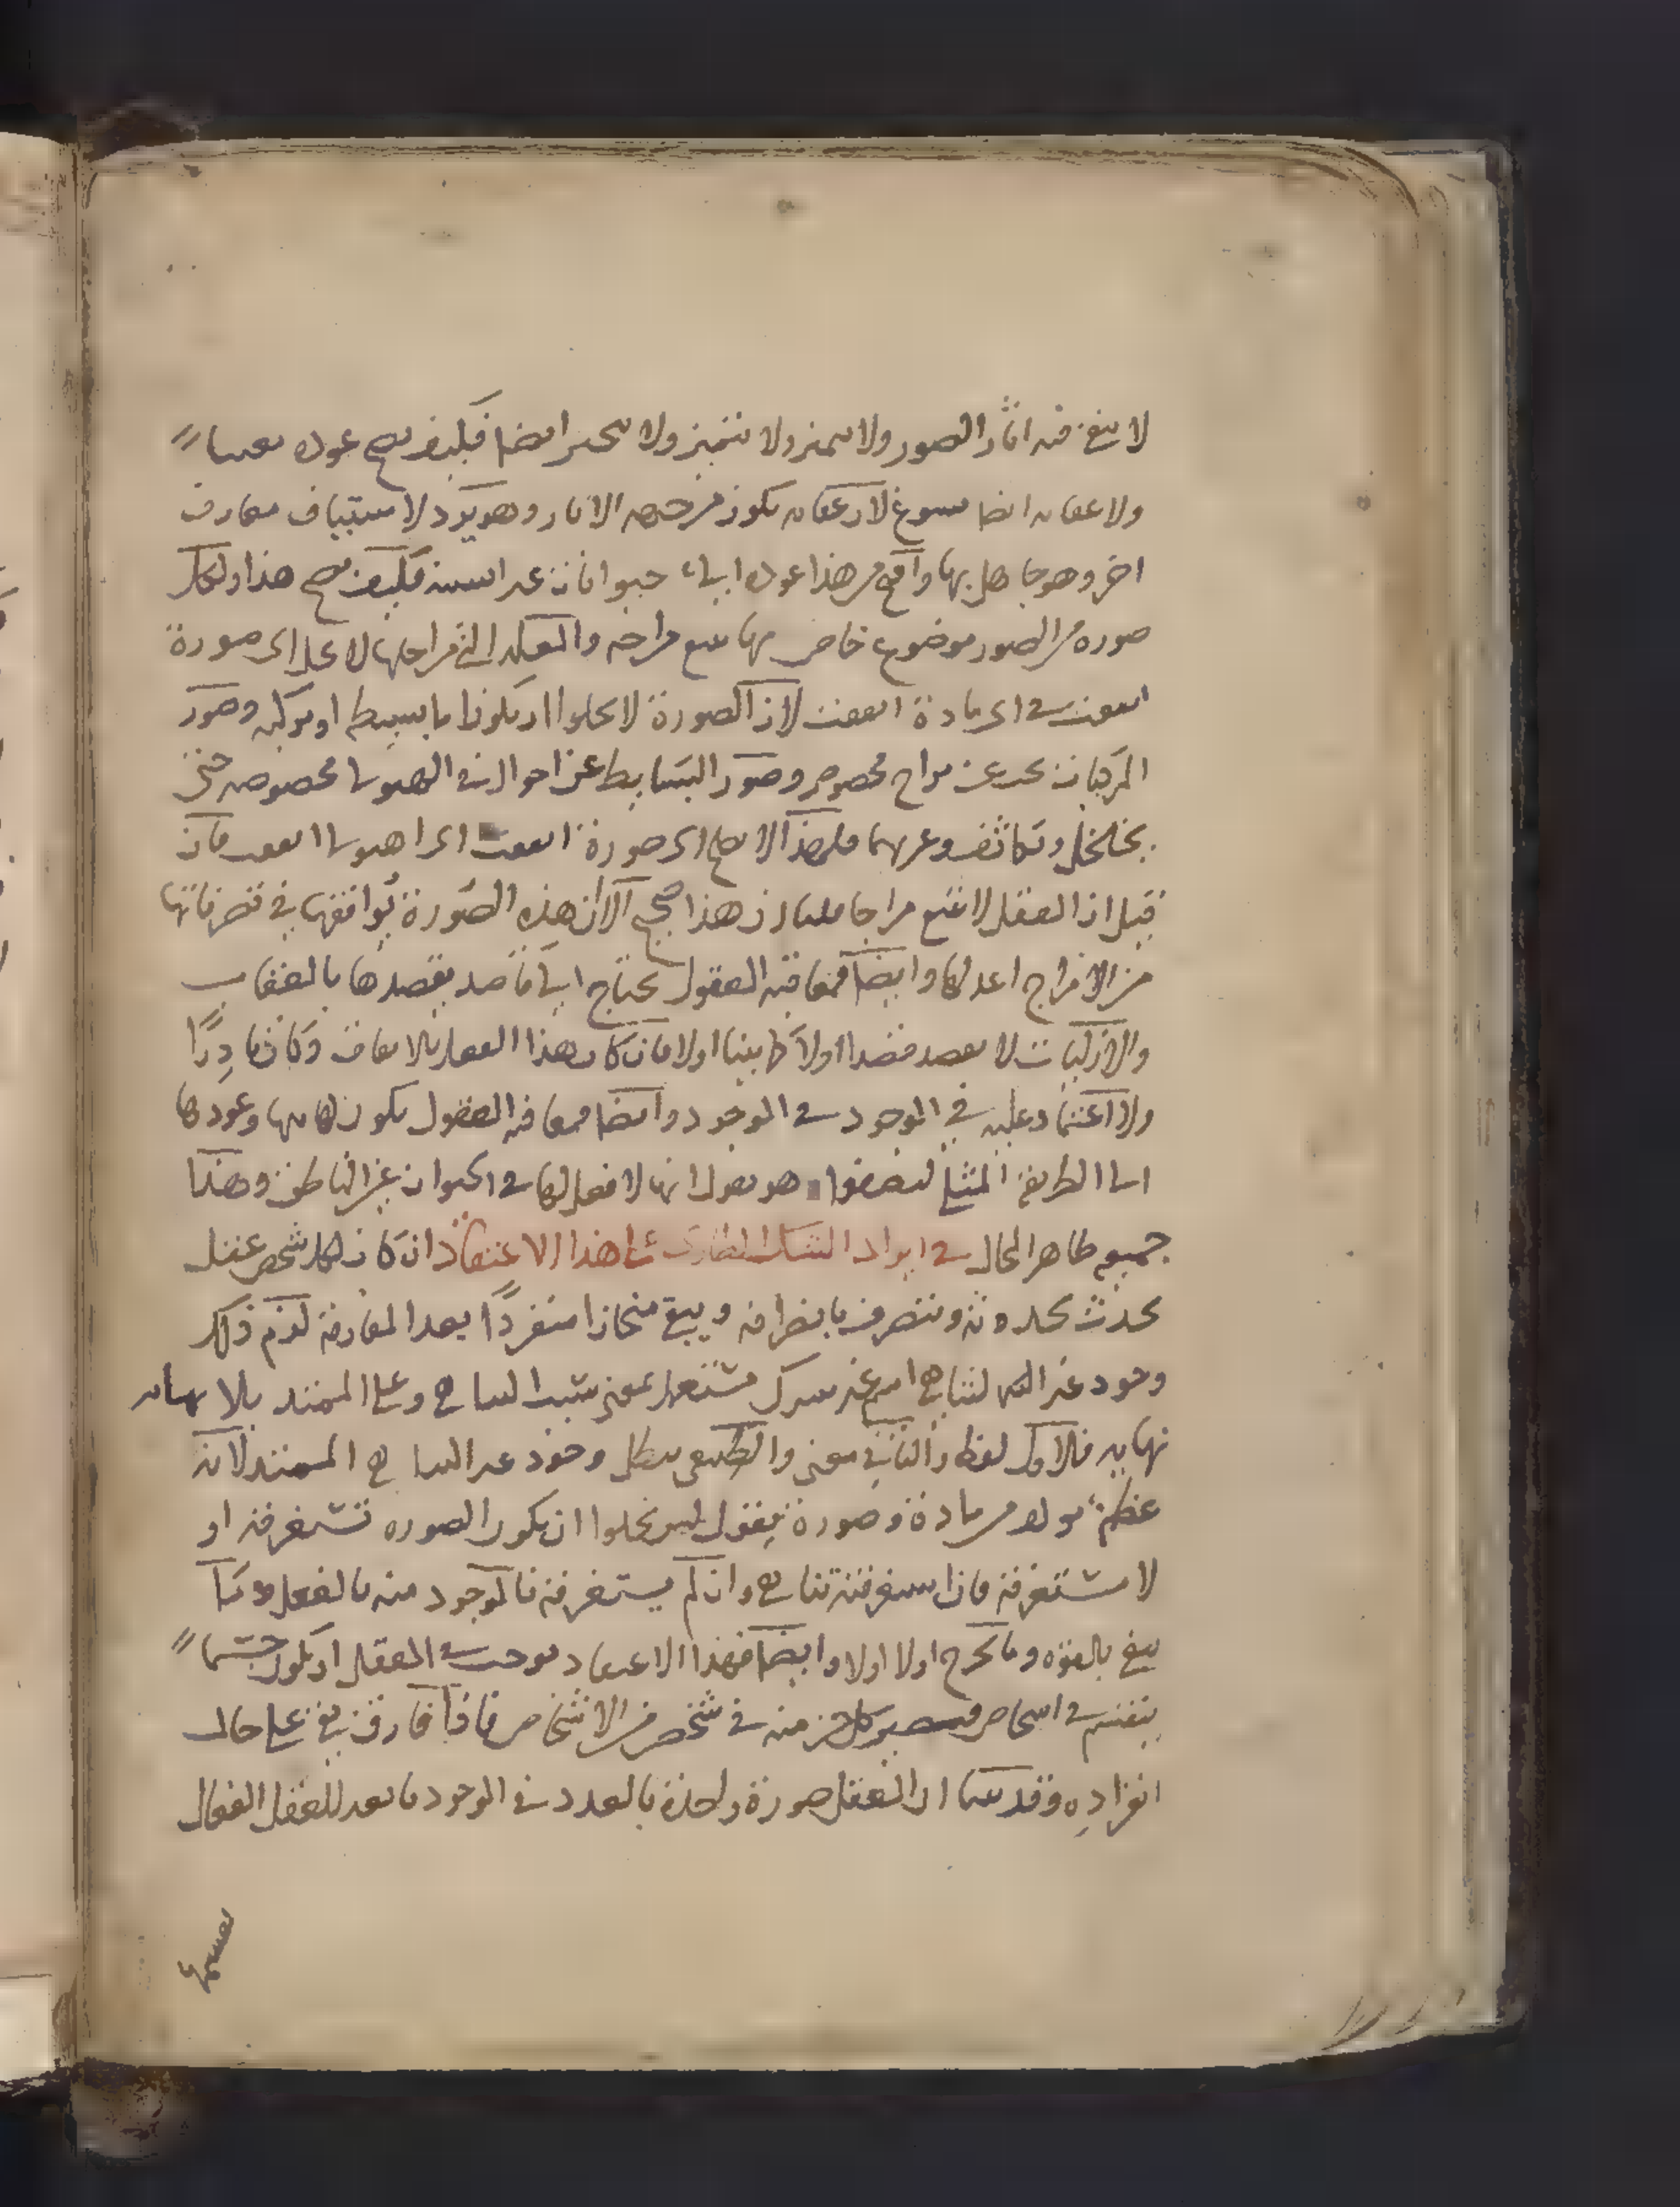 لا يبقى فيه اثار الصور ولا يميز ولا يتميز ولا يتحير ايضا فكيف يصح عوده معينا
ولا عقابه ايضا يسوغ لان عقابه يكون من جهة الاثار وهو يرد لاستيناف معارف
اخر وهو جاهل بها واقبح من هذا عوده الى حيوانات غير انسية فكيف يصح هذا ولكل
صورة من الصور موضوع خاص بها يتبع مزاجه والعقل التي مزاجها لا يحل اي صورة
اتفقت في اي مادة اتفقت لان الصورة لا يخلوا ان يكون اما بسيط او مركبه وصور
المركبات يحدث عن مزاج مخصوص وصور البسايط عن احوال في الهيولى مخصوصه حتى
بتخلخل وتكاثف وغيرهما فلهذا لا يصح اي صورة اتفقت اي هيولى اتفقت فان
قيل ان العقل لا يتبع مزاجا قلنا ان هذا صحيح الا ان هذه الصورة يوافقها في تصرفاتها
من الامزاج اعدلها وايضا فمعاقبة العقول يحتاج الى قاصد يقصدها بالعقاب
والازليات لا يقصد قصدا اولا كما بينا اولا فان كان هذا الفعل بالاتفاق وكان نادرا
ولا اعتماد عليه في الموجود في الوجود وايضا فمعاقبة العقول يكون لها بها وعودها
الى الطريقة المثلى ليصفوا هو يقول انها لا فعل لها في الحيوان غير الناطق وهذا
جميعه ظاهر الحال في ايراد الشك الطارئ على هذا الاعتقاد ان كان لكل شخص عقل
يحدث بحدوثه ويتصرف بانصرافه ويبقى منحازا منفردا بعد المفارقة لزم ذلك
وجود غير المتناهي اسم غير مشترك مشتعمل بمعنى سلب التناهي وعلى الممتد بلا نهايه
نهايه فالاول لفظ والثاني معنى والطبيعي يبطل وجود غير المتناهي الممتد لانه
عظم مولف من مادة وصورة فيقول ليس يخلوا ان يكون الصوره تستغرقه او
لا تستغرقه فان استغرقته تناهى وان لم يستغرقه فالموجود منه بالفعل وما
يبقى بالقوه وما يخرج اولا اولا وايضا فهذا الاعتقاد يوجب في العقل ان يكون جسما
ينقسم في اشخاص فيصير كل جزء منه في شخص من الاشخاص فاذا فارق يبقى على حال
انفراده وقد بينا ان العقل صورة واحدة بالعدد في الوجود تابعة للعقل الفعال